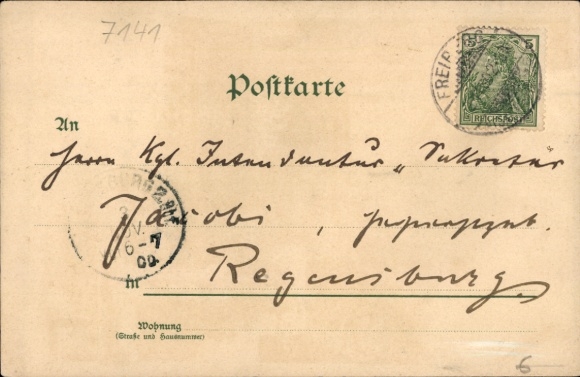 7141
5 5
FREIB
REICHSPOST
Postkarte
An
Herrn Kgl. Intendantur-Sekretär
Jacobi,
NOV.
6-7
00.
Regensburg
in
Wohnung
(Straße und Hausnummer)
6